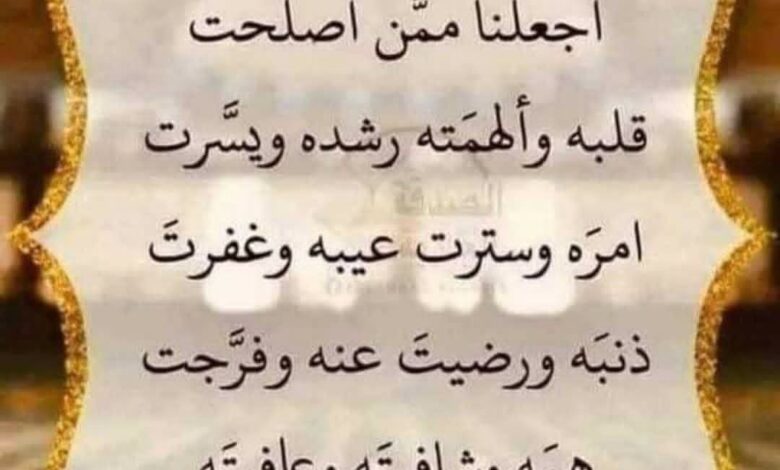 اجعلنا ممَّن اصلحت
قلبه وألهمَته رشده ويسَّرت
امرَه وسترت عيبه وغفرتَ
ذنبَه ورضيتَ عنه وفرَّجت
همَه وشافيتَه وعافيتَه
الصدقة